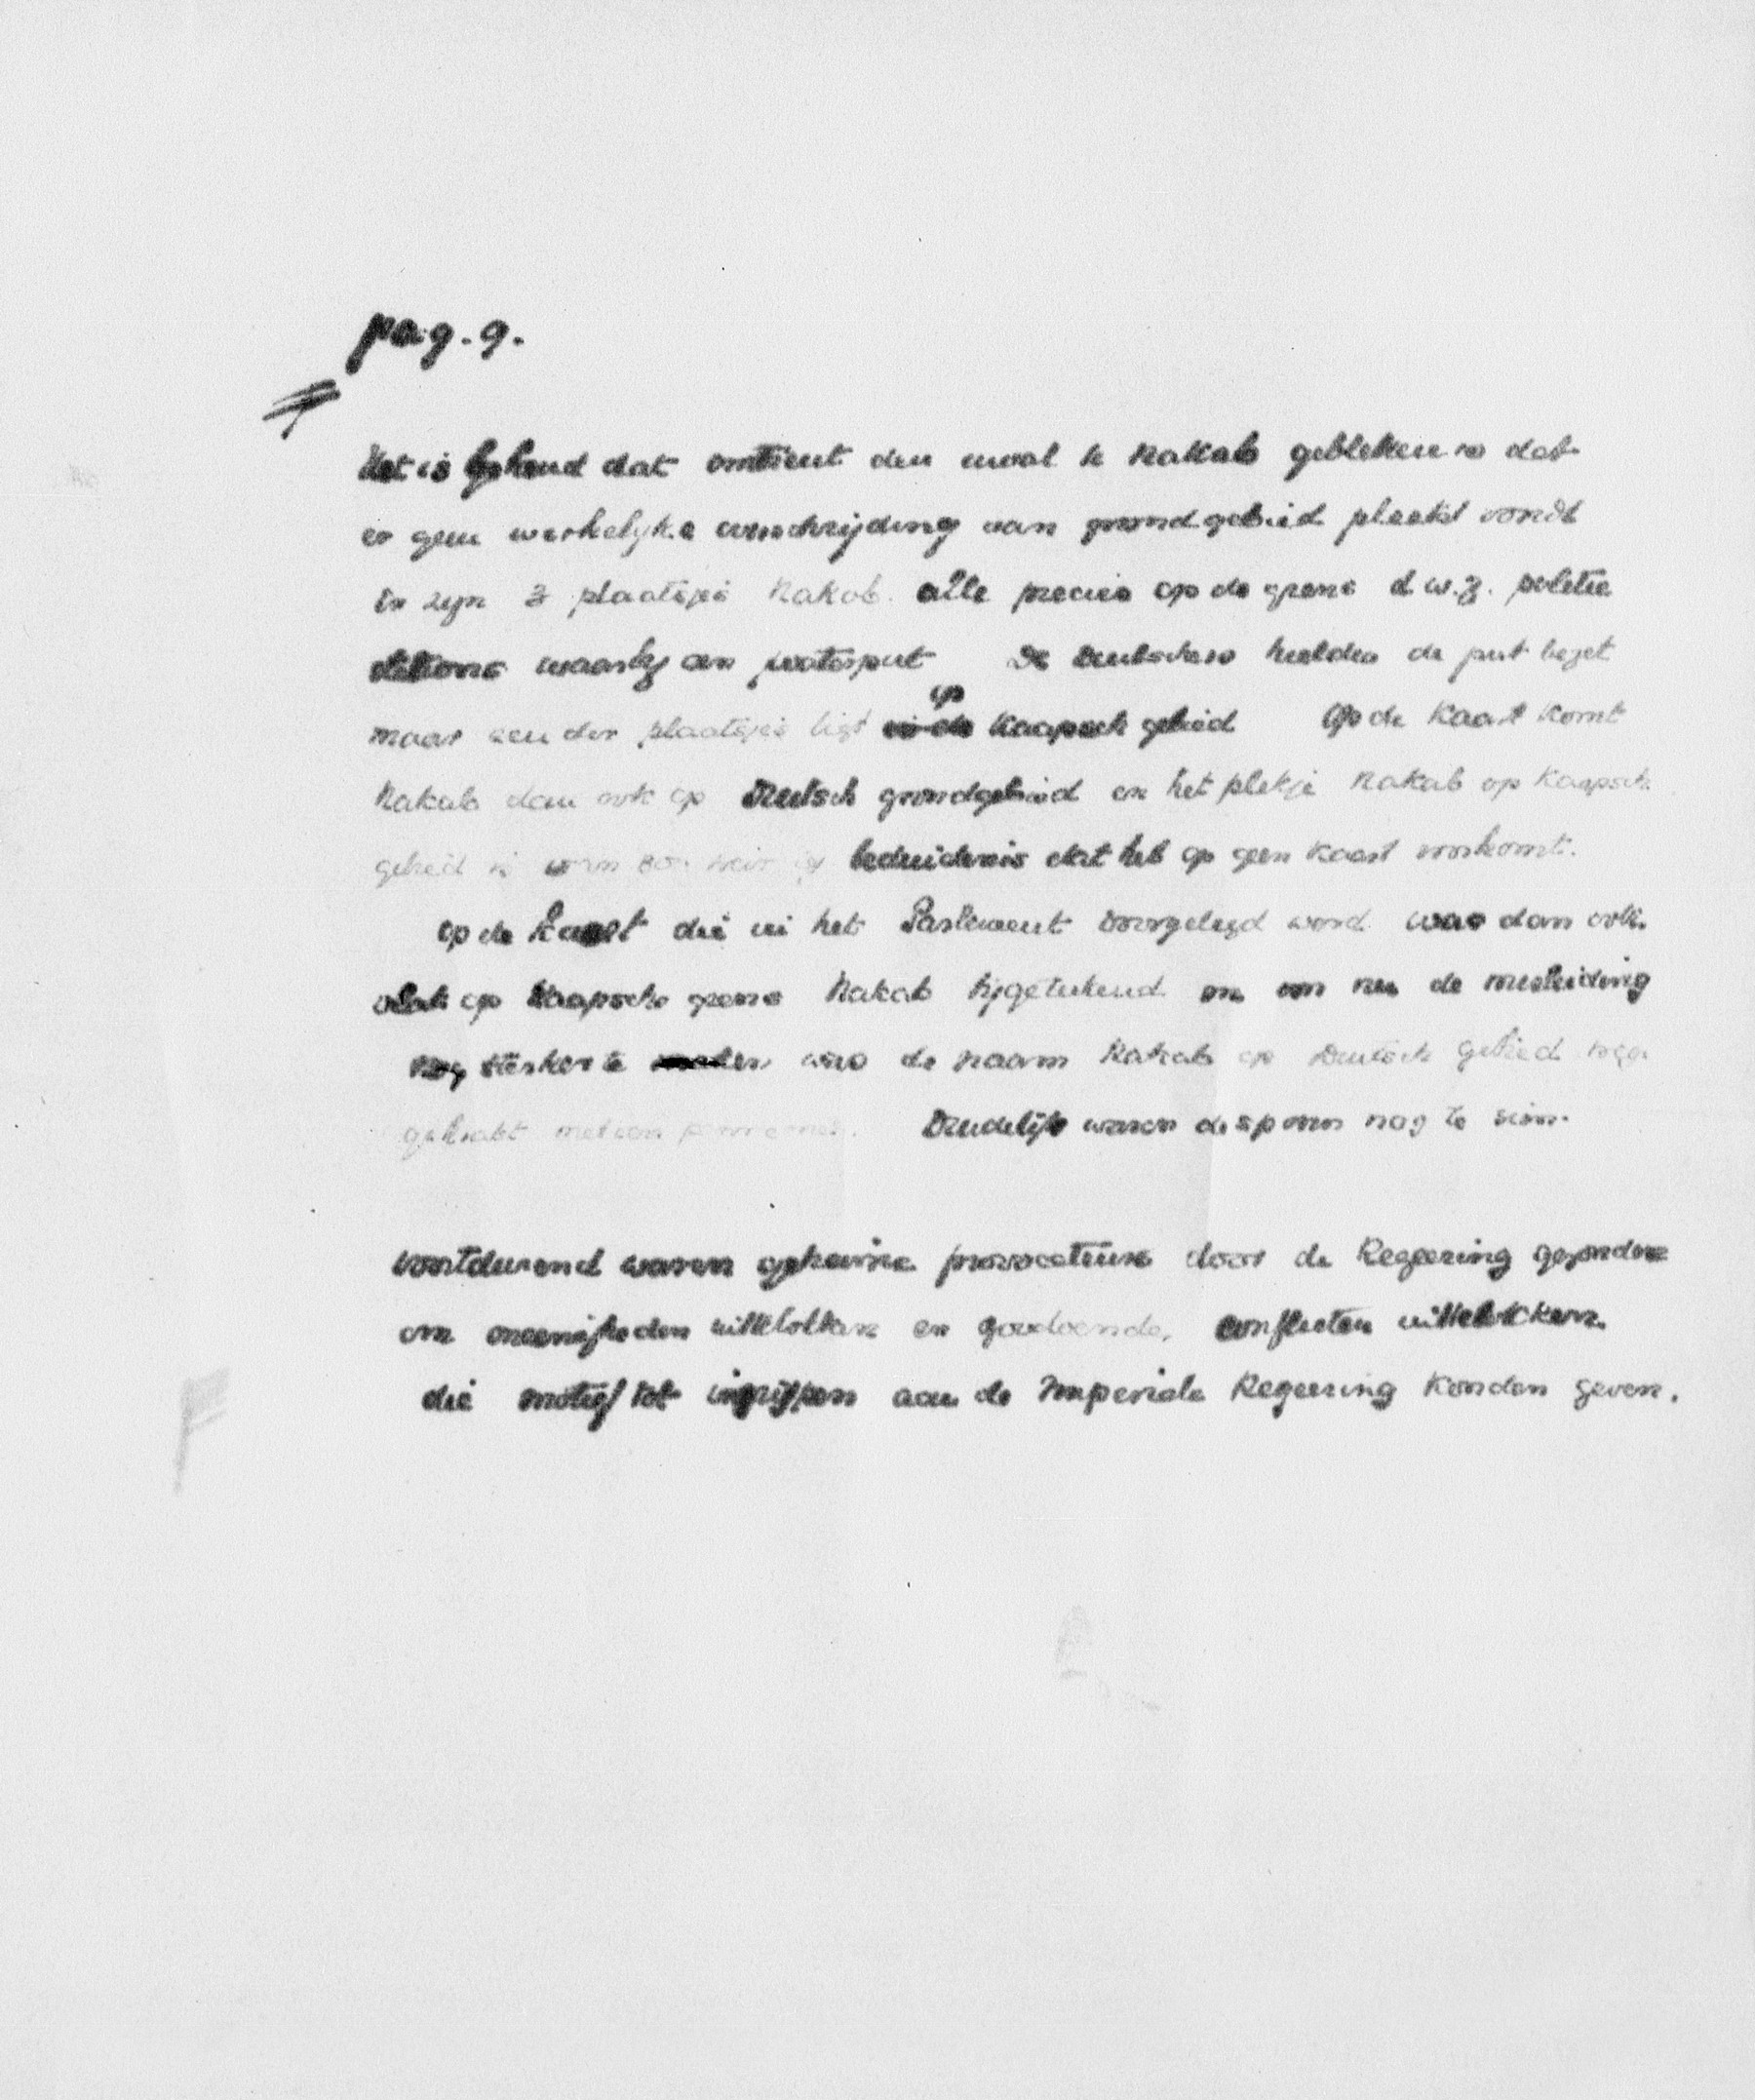 pag. 9.
Het is bekend dat omtrent den inval te Nakab gebleken is dat
er geen werkelyke overschrijding van grondgebied plaats vondt
Er zyn 3 plaatsjes Nakab. alle precies op de grens d.w.z. politie
stations waarbij een waterput De Deutschers hielden de put bezet
maar een der plaatsjes ligt op Kaapsch gebied Op de Kaart komt
Nakab dan ook op Deutsch grondgebied en het plekje Nakab op Kaapsch
gebied is van zoo weinig beduidenis dat het op geen Kaart voorkomt.
Op de Kaart die in het Parlement voorgelegd werd was dan ook
vlak op Kaapsche grens Nakab bijgetekend en om nu de misleiding
nog sterker te maken was de naam Nakab op Deutsch gebied weg
gekrabt met een pennemes. Duidelijk waren de sporen nog te zien.
Voortdurend waren geheime provocateurs door de Regeering gezonden
om oneenigheden uittelokken en zoodoende, conflicten uittelokken
die motief tot ingrijpen aan de Imperiale Regeering konden geven.